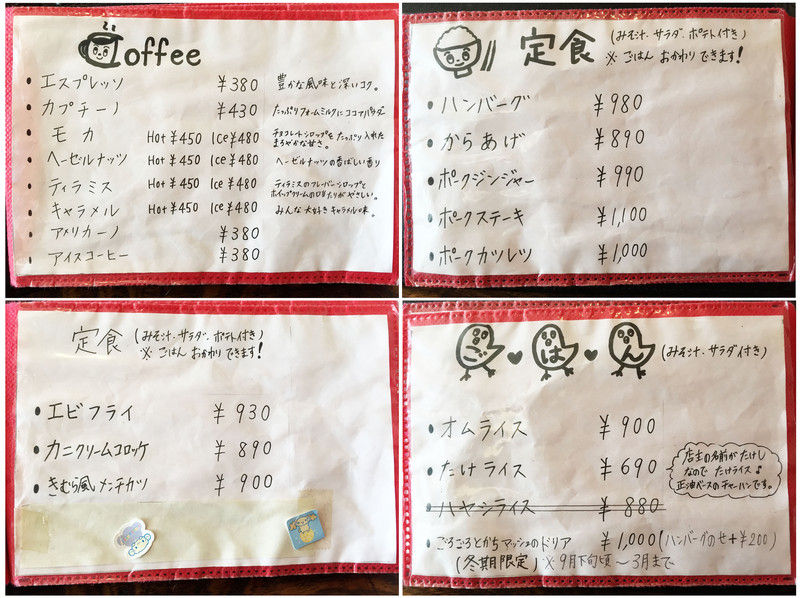 Coffee
・エスプレッソ ¥380 豊かな風味と深いコク。
・カプチーノ ¥430 たっぷりフォームミルクにココアパウダー
・モカ Hot ¥450 Ice ¥480 チョコレートシロップをたっぷり入れた
まろやかな甘さ。
・ヘーゼルナッツ Hot ¥450 Ice ¥480 ヘーゼルナッツの香ばしい香り
・ティラミス Hot ¥450 Ice ¥480 ティラミスのフレーバーシロップと
ホイップクリームの口当たりがやさしい。
・キャラメル Hot ¥450 Ice ¥480 みんな大好きキャラメル味。
・アメリカーノ ¥380
・アイスコーヒー ¥380
定食 (みそ汁、サラダ、ポテト付き)
※ごはんおかわりできます!
・ハンバーグ ¥980
・からあげ ¥890
・ポークジンジャー ¥990
・ポークステーキ ¥1,100
・ポークカツレツ ¥1,000
定食 (みそ汁、サラダ、ポテト付き)
※ごはんおかわりできます!
・エビフライ ¥930
・カニクリームコロッケ ¥890
・きむら風メンチカツ ¥900
ご♥は♥ん (みそ汁、サラダ付き)
・オムライス ¥900
・たけライス ¥690
店主の名前がたけし
なので たけライス♪
正油ベースのチャーハンです。
・ハヤシライス ¥880
・ごろごろとかちマッシュのドリア ¥1,000 (ハンバーグのせ+¥200)
(冬期限定) ※9月下旬頃〜3月まで